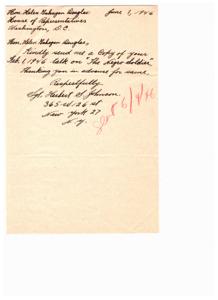 Hon. Helen Gahagan Douglas June 1, 1946
House of Representatives
Washington, D.C.
Hon. Helen Gahagan Douglas,
Kindly send me a Copy of your
Feb. 1, 1946 talk on "The Negro Soldier"
Thanking you in advance for same.
Respectfully
Sgt. Herbert S. Johnson
365 W. 126 st
New York 27
N.Y.
Sent 6/4/46